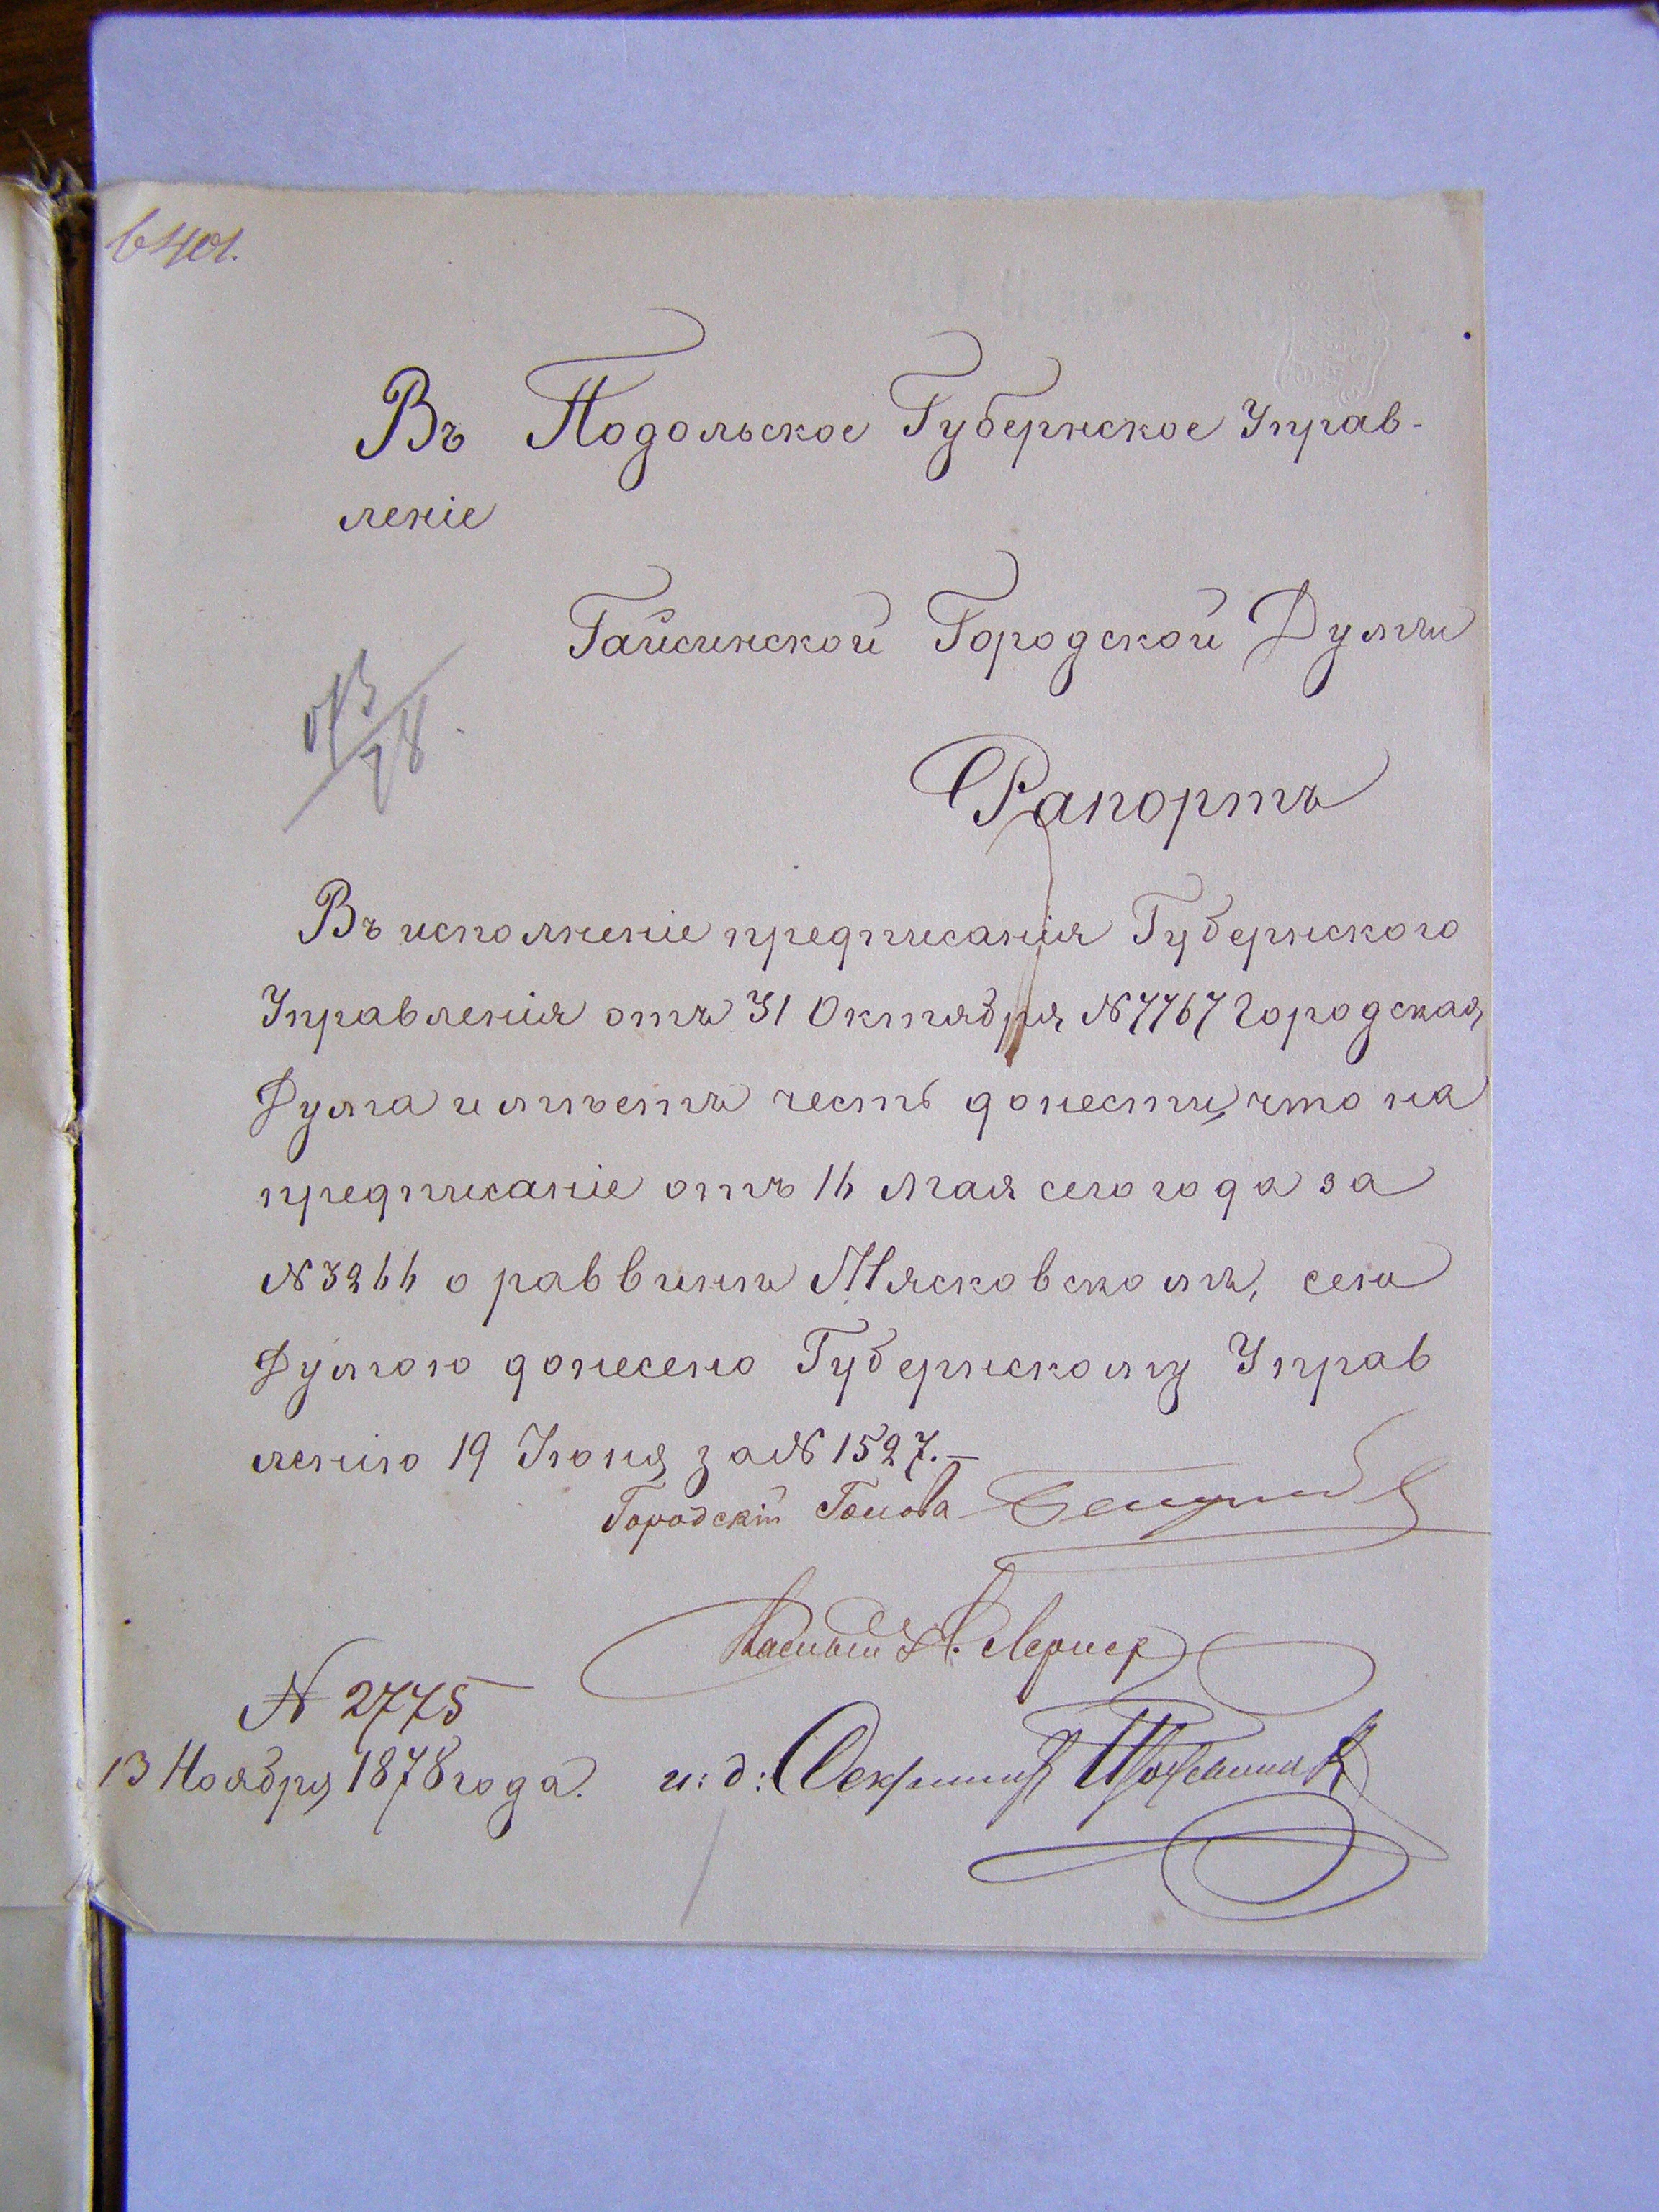 6401.
Въ Подольское Губернское Управ-
леніе
Гайсинской Городской Думы
Рапортъ
Въ исполненіе предписанія Губернского
Управленія отъ 31 Октября № 7767 Городская
Дума имѣетъ честь донести, что на
предписаніе отъ 16 Мая сего года за
№ 3266 о раввинѣ Мясковскомъ, сею
Думою донесено Губернскому Управ
ленію 19 Іюня за № 1527.—
Городскій Голова
Гласный Лернер
№ 2775
13 Ноября 1878 года. и: д: Секретаря